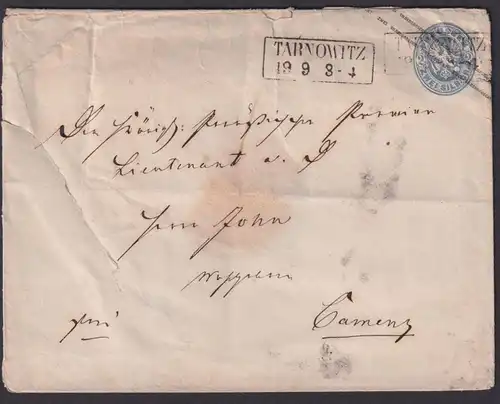 TARNOWITZ
19 9 3-4
Den Königl: Preußischen Premier
Lieutenant a. D
Herrn John
Wohlgeboren
frei
Camenz